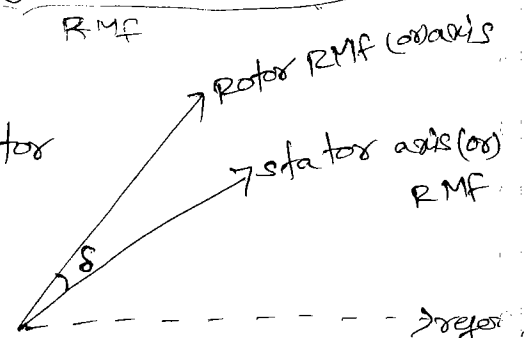 RMF
Rotor RMF (or) axis
tor
stator axis (or)
RMF
δ
refer